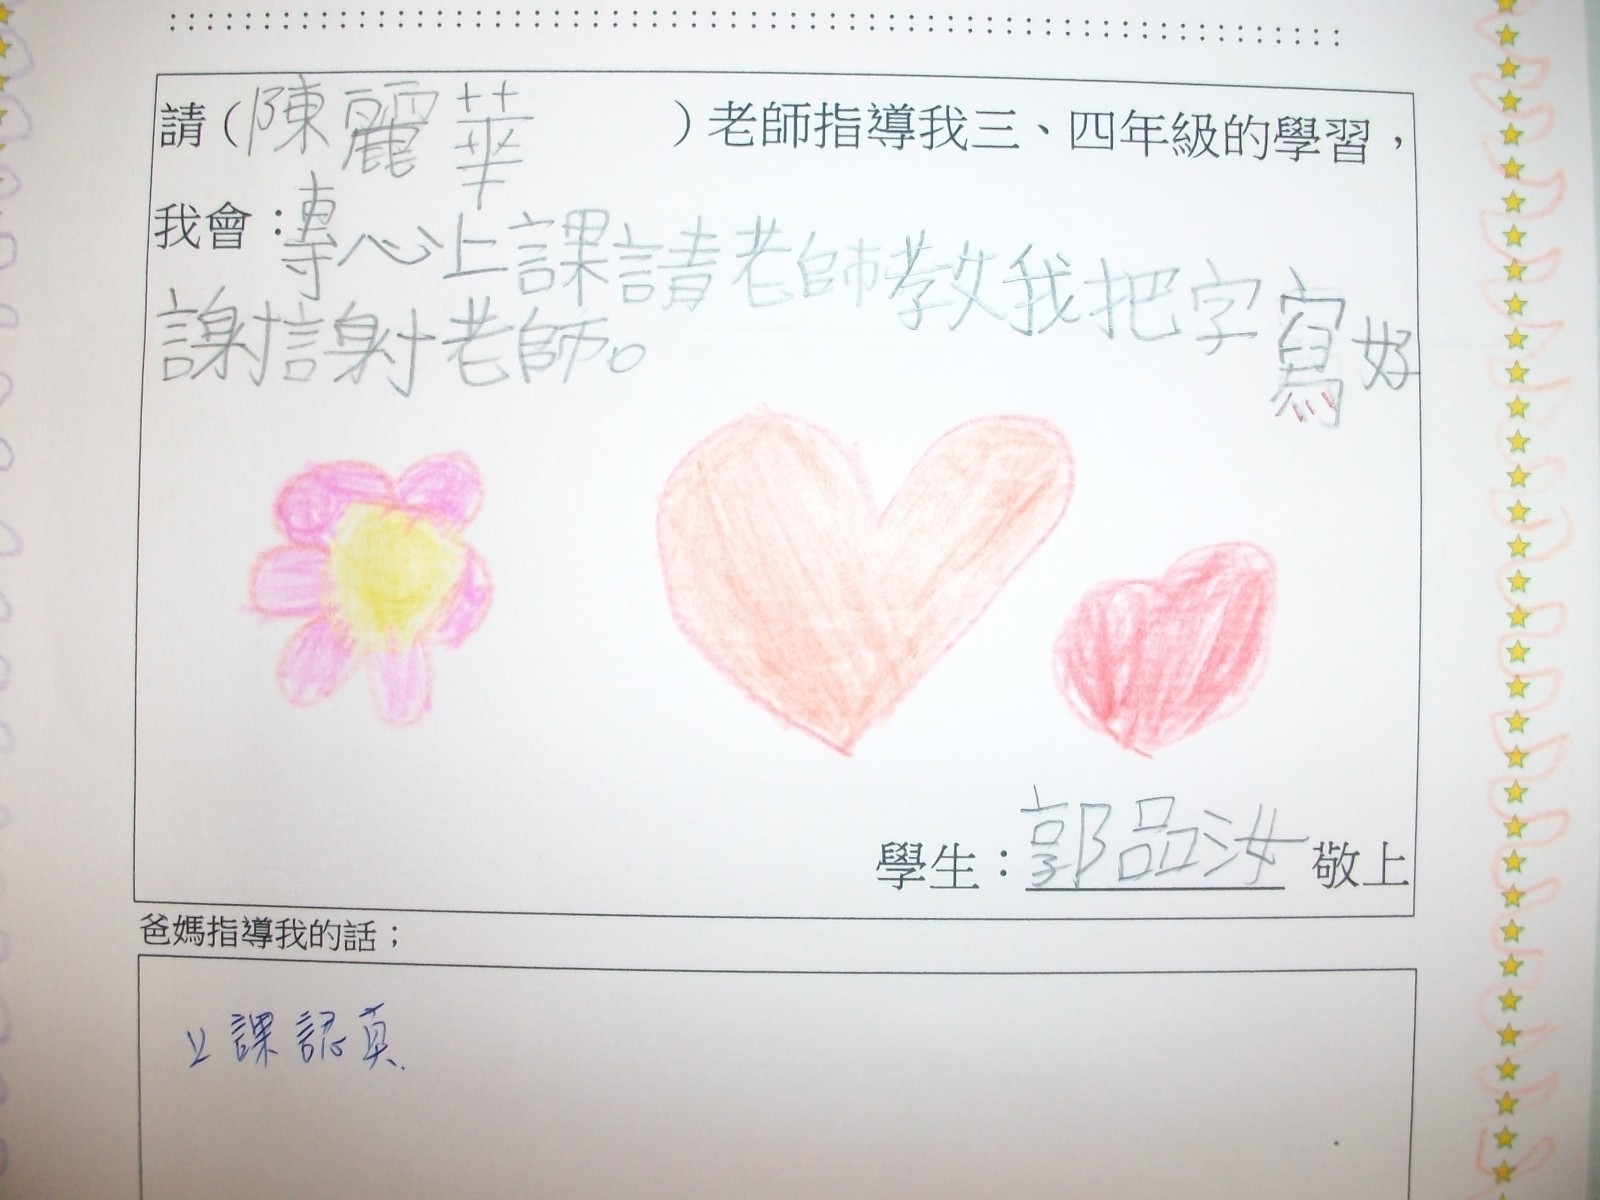 請(陳麗華)老師指導我三、四年級的學習，
我會：專心上課請老師教我把字寫好
謝謝老師。
學生：郭品汝敬上
爸媽指導我的話；
上課認真.